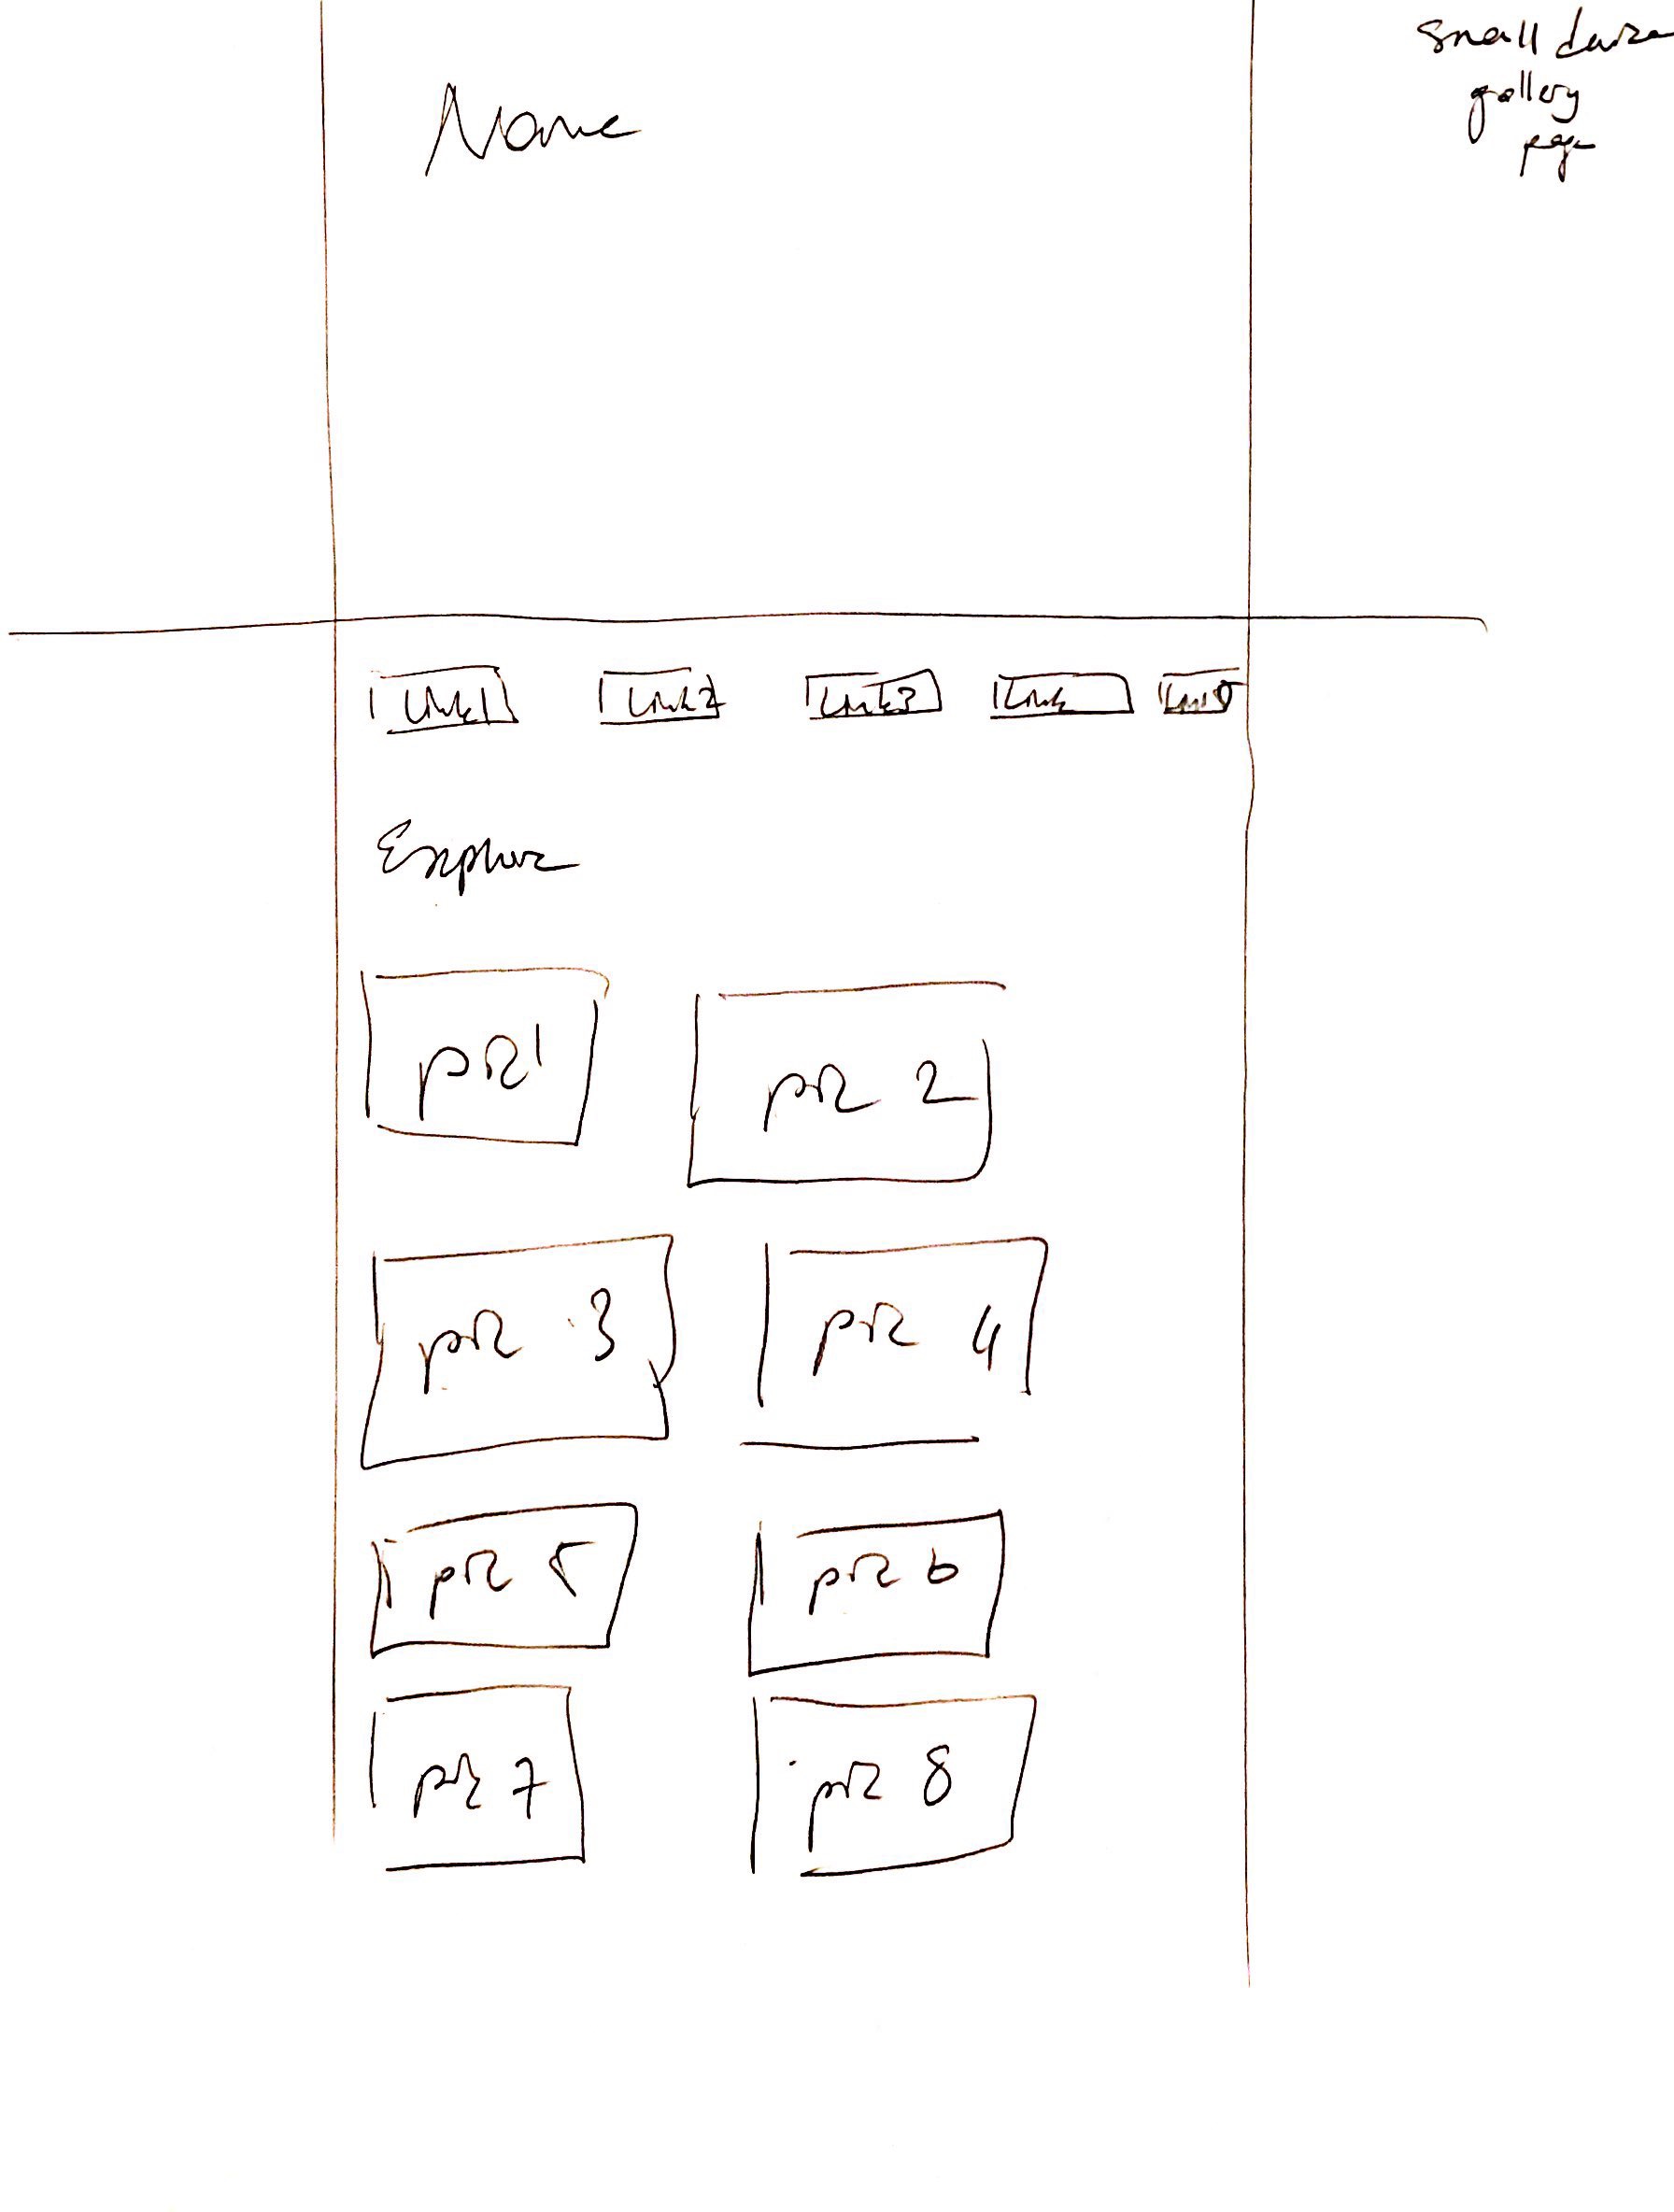 small device
gallery
page
Name
Link1 Link2 Link3 Link Link5
Explore
pR1 pR 2
pR 3 pR 4
pR 5 pR 6
pR 7 pR 8